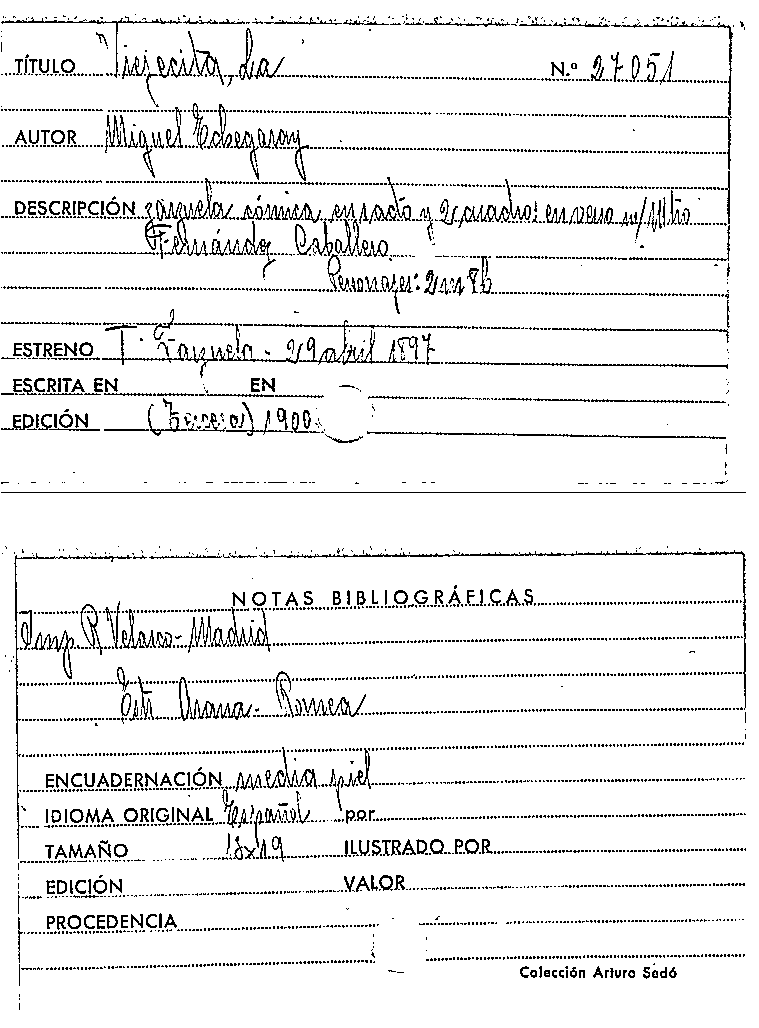 TÍTULO Viejecita, La N.º 27051
AUTOR Miguel Echegaray
DESCRIPCIÓN zarzuela cómica en 1 acto y 2 cuadros en verso m/ Mtro
Fernández Caballero
Personajes: 2 m 8 h
ESTRENO T. Zarzuela - 29 abril 1897
ESCRITA EN EN
EDICIÓN (Tercera) 1900
NOTAS BIBLIOGRÁFICAS
Imp R Velasco - Madrid
Estr Arana - Romea
ENCUADERNACIÓN media piel
IDIOMA ORIGINAL Español por
TAMAÑO 13x19 ILUSTRADO POR
EDICIÓN VALOR
PROCEDENCIA
Colección Arturo Sedó